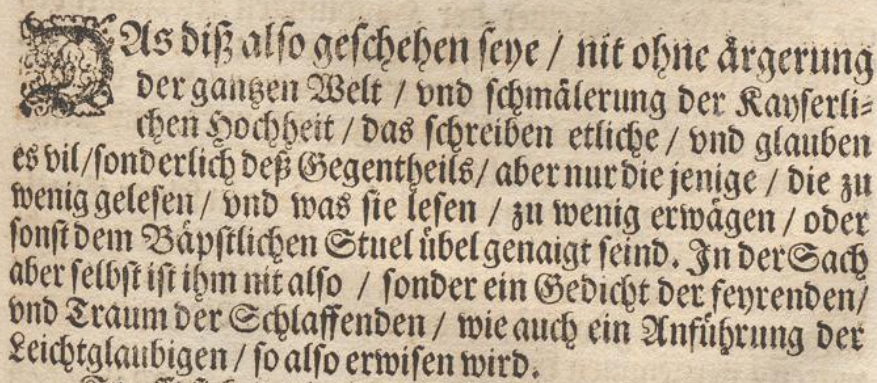 DAs diß also geschehen seye / nit ohne ärgerung
der gantzen Welt / vnd schmälerung der Kayserli-
chen Hochheit / das schreiben etliche / vnd glauben
es vil/sonderlich deß Gegentheils/ aber nur die jenige / die zu
wenig gelesen / vnd was sie lesen / zu wenig erwägen / oder
sonst dem Bäpstlichen Stuel übel genaigt seind. In der Sach
aber selbst ist ihm nit also / sonder ein Gedicht der feyrenden/
vnd Traum der Schlaffenden / wie auch ein Anführung der
Leichtglaubigen / so also erwisen wird.